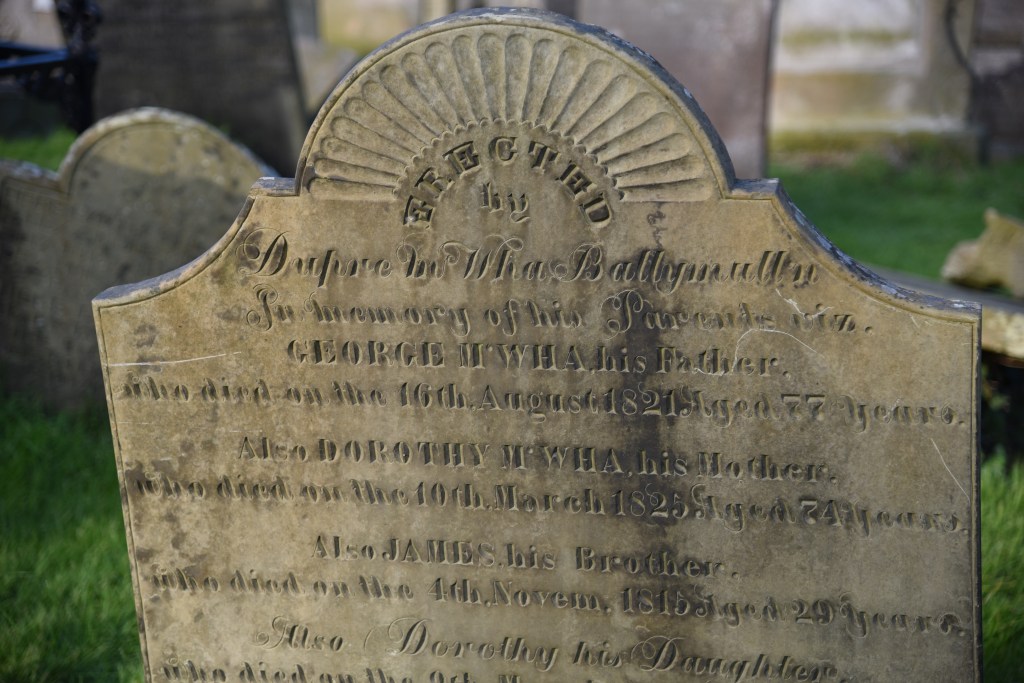 ERECTED
by
Dupre Mc Wha Ballymullen
In memory of his Parents viz.
GEORGE Mc WHA, his Father.
who died on the 16th. August 1821 Aged 77 Years.
Also DOROTHY Mc WHA, his Mother.
who died on the 10th. March 1825 Aged 74 Years.
Also JAMES, his Brother.
who died on the 4th. Novem. 1815 Aged 29 Years.
Also Dorothy his Daughter
who died on the 9th.